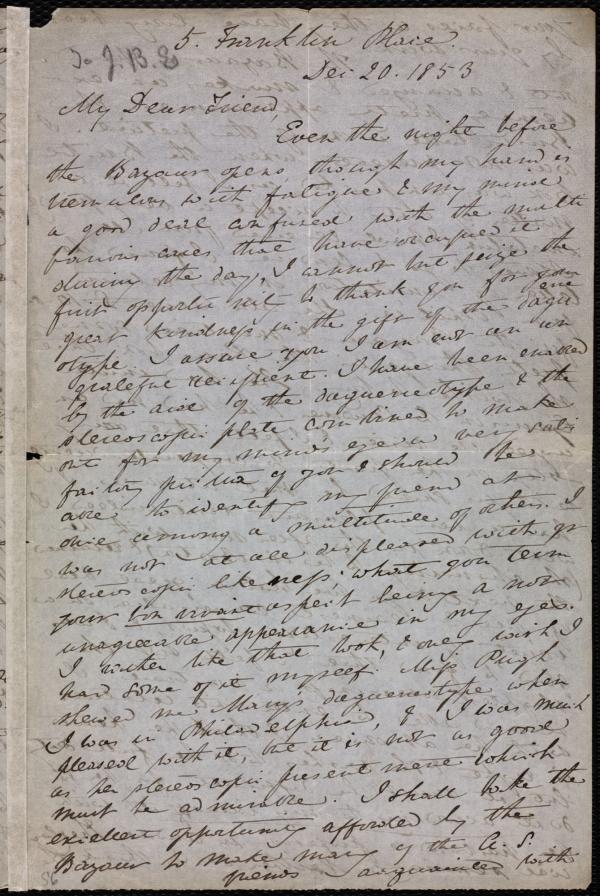 To J. B. E
5. Franklin Place.
Dec 20. 1853
My Dear Friend
Even the night before
the Bazaar opens though my hand is
tremulous with fatigue & my mind
a good deal confused with the multi
farious cares that have occupied it
during the day, I cannot but seize the
first opportunity to thank you for your
great kindness in the gift of the daguerre
otype I assure you I am not an un
grateful recipient. I have been enabled
by the aid of the daguerreotype & the
stereoscopic plate combined to make
out for my minds eye a very satis
factory picture of you & should be
able to identify my friend at
once among a multitude of others. I
was not at all displeased with yr
stereoscopic likeness; what you term
your bon vivant aspect being a not
unagreeable appearance in my eyes.
I rather like that look, & only wish I
had some of it myself. Miss Pugh
shewed me Marys daguerreotype when
I was in Philadelphia, & I was much
pleased with it, but it is not as good
as her stereoscopic presentment which
must be admirable. I shall take the
excellent opportunity afforded by the
Bazaar to make many of the A. S.
friends acquainted with